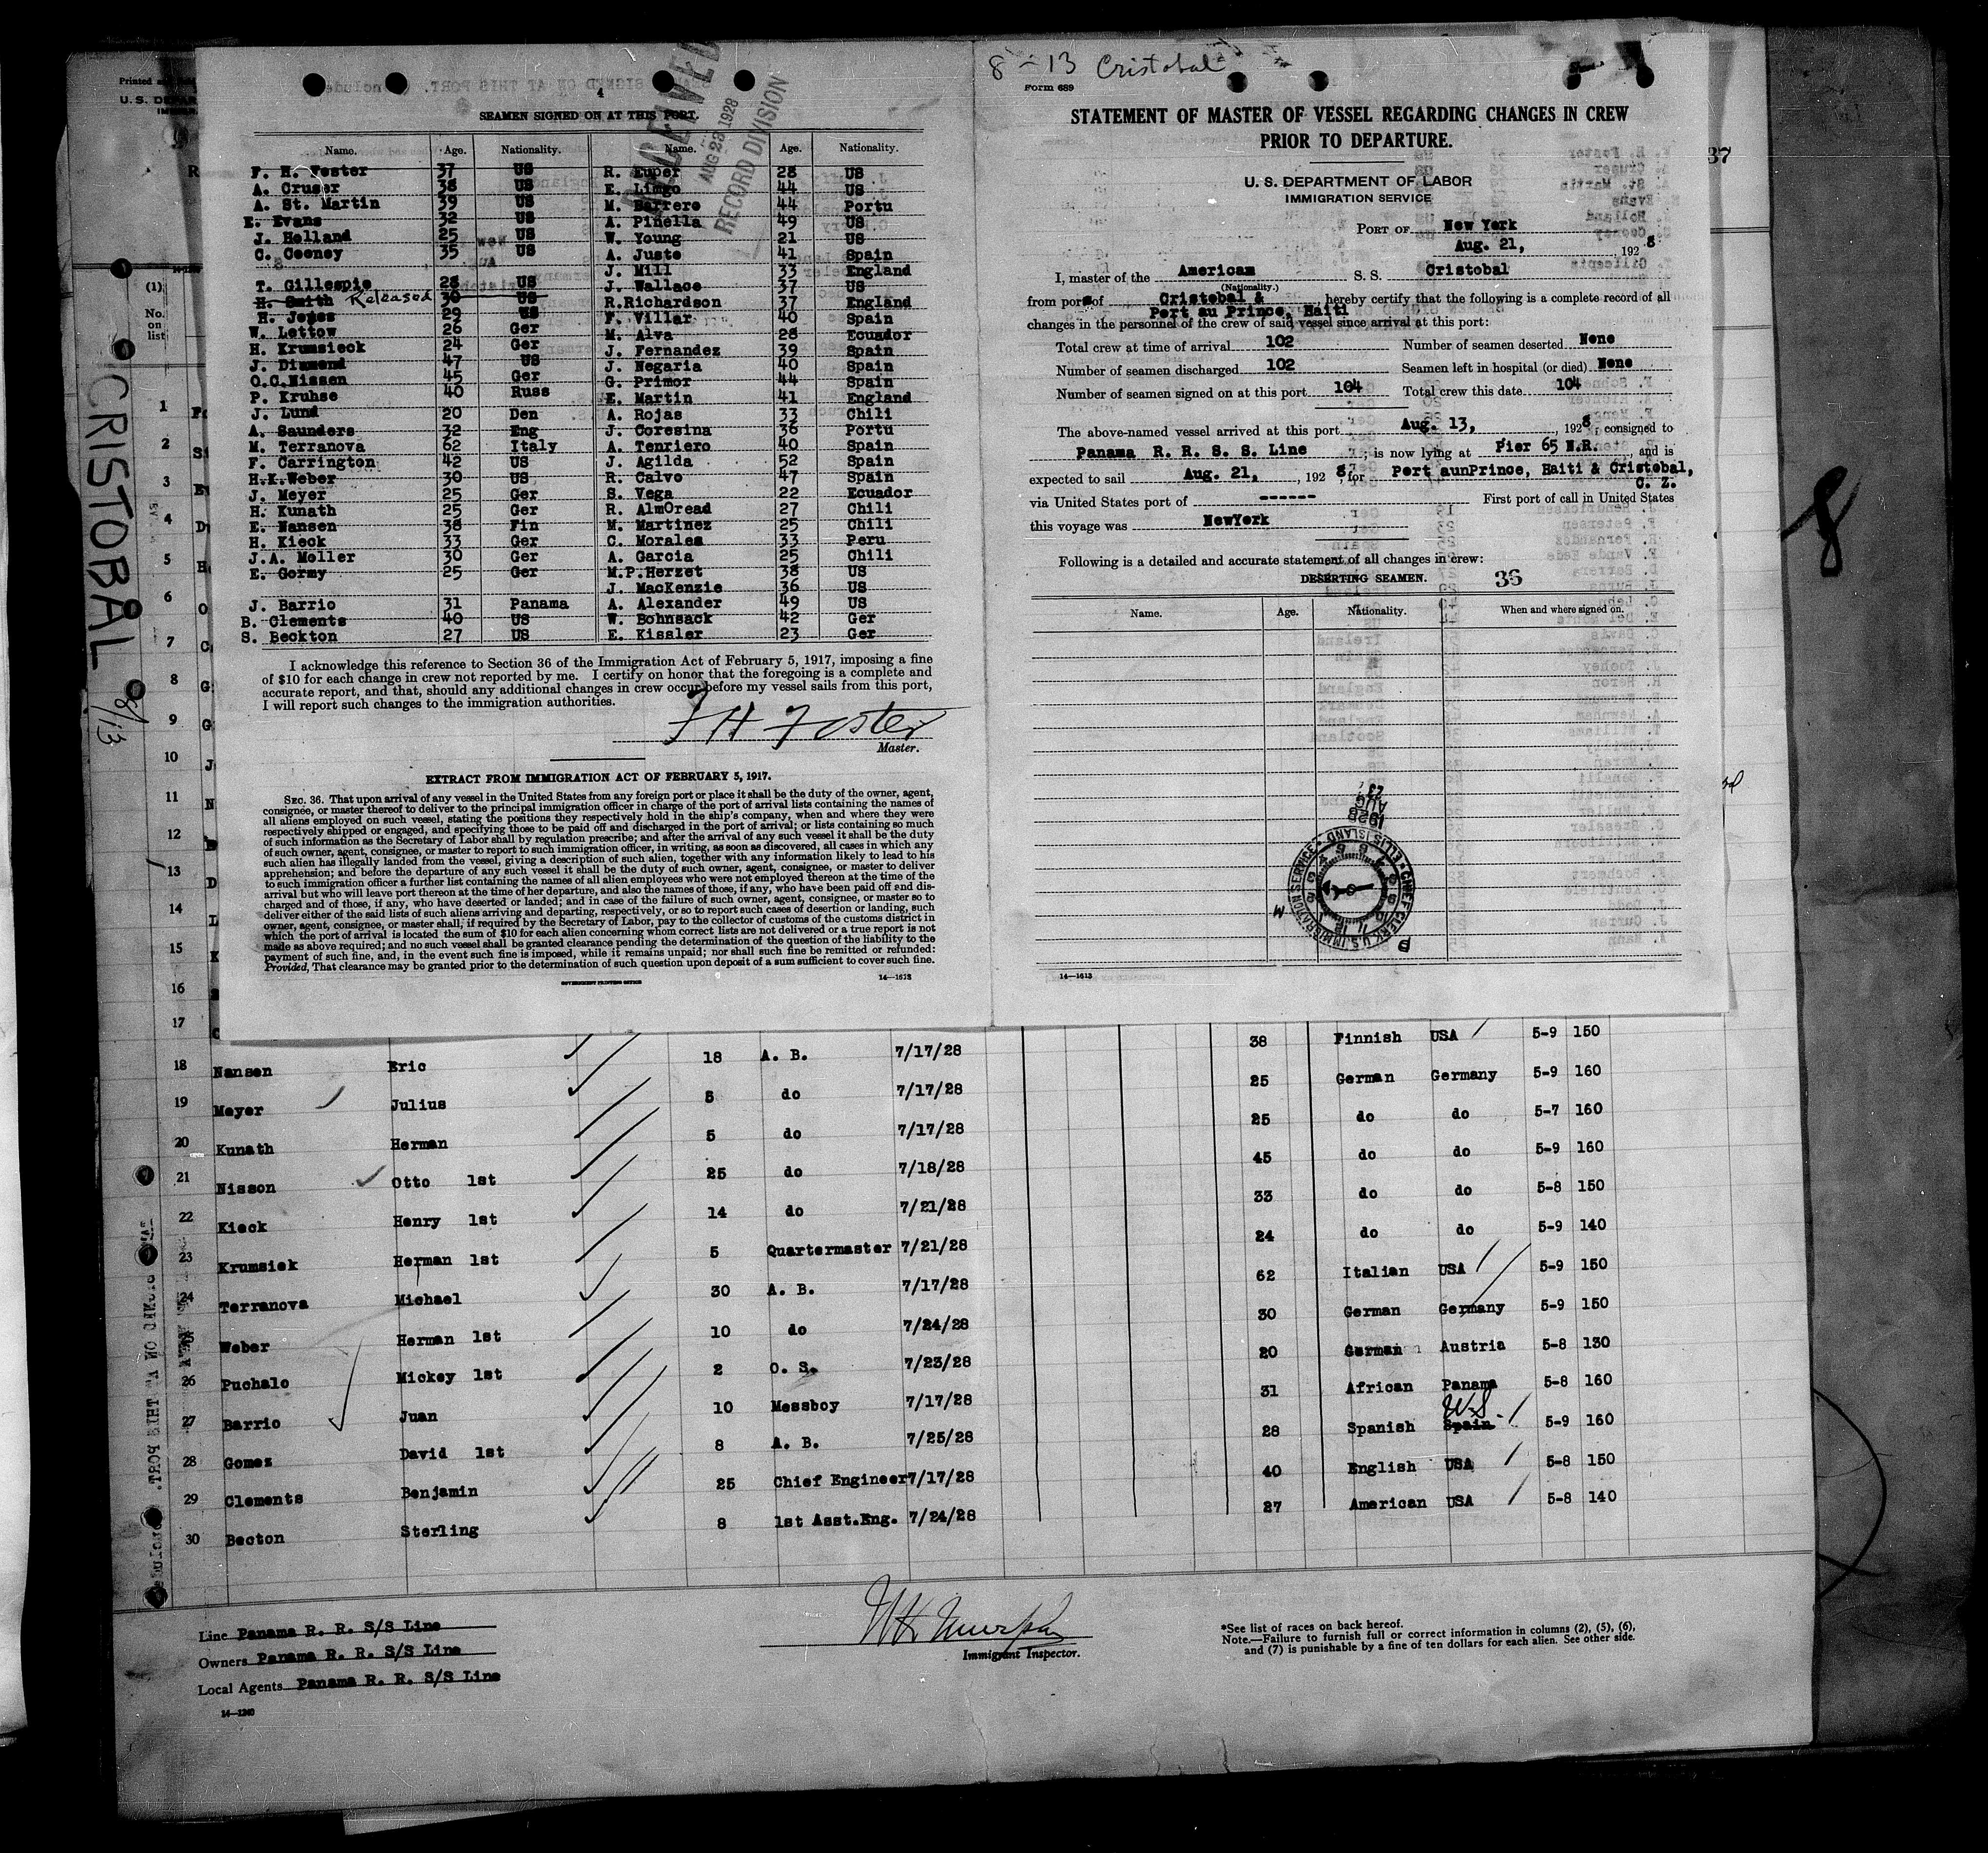 8-13 Cristobal
4
SEAMEN SIGNED ON AT THIS PORT.
RECEIVED
AUG 23 1928
RECORD DIVISION
Name. Age. Nationality. Name. Age. Nationality.
F. H. Foster 37 US R. Euper 28 US
A. Cruser 38 US E. Limgo 44 US
A. St. Martin 39 US M. Barrero 44 Portu
E. Evans 32 US A. Pinella 49 US
J. Holland 25 US W. Young 21 US
C. Cooney 35 US A. Juste 41 Spain
J. Mill 33 England
T. Gillespie 28 US J. Wallace 37 US
H. Smith Released 30 US R.Richardson 37 England
H. Jones 29 US F. Villar 40 Spain
W. Lettow 26 Ger M. Alva 28 Ecuador
H. Krumsieck 24 Ger J. Fernandez 39 Spain
J. Diamond 47 US J. Negaria 40 Spain
O.C.Nissen 45 Ger G. Primor 44 Spain
P. Kruhse 40 Russ E. Martin 41 England
J. Lund 20 Den A. Rojas 33 Chili
A. Saunders 32 Eng J. Coresina 36 Portu
M. Terranova 62 Italy A. Tenriero 40 Spain
F. Carrington 42 US J. Agilda 52 Spain
H.K.Weber 30 US R. Calvo 47 Spain
J. Meyer 25 Ger S. Vega 22 Ecuador
H. Kunath 25 Ger R. AlmOread 27 Chili
E. Nansen 38 Fin M. Martinez 25 Chili
H. Kieck 33 Ger C. Morales 33 Peru
J.A. Moller 30 Ger A. Garcia 25 Chili
E. Gormy 25 Ger M.P.Herzet 38 US
J. MacKenzie 36 US
J. Barrio 31 Panama A. Alexander 49 US
B. Clements 40 US W. Bohnsack 42 Ger
S. Beckton 27 US E. Kissler 23 Ger
I acknowledge this reference to Section 36 of the Immigration Act of February 5, 1917, imposing a fine
of $10 for each change in crew not reported by me. I certify on honor that the foregoing is a complete and
accurate report, and that, should any additional changes in crew occur before my vessel sails from this port,
I will report such changes to the immigration authorities.
F H Foster
Master.
EXTRACT FROM IMMIGRATION ACT OF FEBRUARY 5, 1917.
SEC. 36. That upon arrival of any vessel in the United States from any foreign port or place it shall be the duty of the owner, agent,
consignee, or master thereof to deliver to the principal immigration officer in charge of the port of arrival lists containing the names of
all aliens employed on such vessel, stating the positions they respectively hold in the ship's company, when and where they were
respectively shipped or engaged, and specifying those to be paid off and discharged in the port of arrival; or lists containing so much
of such information as the Secretary of Labor shall by regulation prescribe; and after the arrival of any such vessel it shall be the duty
of such owner, agent, consignee, or master to report to such immigration officer, in writing, as soon as discovered, all cases in which any
such alien has illegally landed from the vessel, giving a description of such alien, together with any information likely to lead to his
apprehension; and before the departure of any such vessel it shall be the duty of such owner, agent, consignee, or master to deliver
to such immigration officer a further list containing the names of all alien employees who were not employed thereon at the time of the
arrival but who will leave port thereon at the time of her departure, and also the names of those, if any, who have been paid off and dis-
charged and of those, if any, who have deserted or landed; and in case of the failure of such owner, agent, consignee, or master so to
deliver either of the said lists of such aliens arriving and departing, respectively, or so to report such cases of desertion or landing, such
owner, agent, consignee, or master shall, if required by the Secretary of Labor, pay to the collector of customs of the customs district in
which the port of arrival is located the sum of $10 for each alien concerning whom correct lists are not delivered or a true report is not
made as above required; and no such vessel shall be granted clearance pending the determination of the question of the liability to the
payment of such fine, and, in the event such fine is imposed, while it remains unpaid; nor shall such fine be remitted or refunded:
Provided, That clearance may be granted prior to the determination of such question upon deposit of a sum sufficient to cover such fine.
GOVERNMENT PRINTING OFFICE
14—1613
Form 689
STATEMENT OF MASTER OF VESSEL REGARDING CHANGES IN CREW
PRIOR TO DEPARTURE.
U. S. DEPARTMENT OF LABOR
IMMIGRATION SERVICE
PORT OF New York
Aug. 21, 1928
I, master of the American S. S. Cristobal
(Nationality.)
from ports of Cristobal & Port au Prince, Haiti, hereby certify that the following is a complete record of all
changes in the personnel of the crew of said vessel since arrival at this port:
Total crew at time of arrival 102 Number of seamen deserted None
Number of seamen discharged 102 Seamen left in hospital (or died) None
Number of seamen signed on at this port 104 Total crew this date 104
The above-named vessel arrived at this port Aug. 13, 1928, consigned to
Panama R. R. S. S. Line ; is now lying at Pier 65 N.R. , and is
expected to sail Aug. 21, 1928, for Port aunPrince, Haiti & Cristobal,
C. Z.
via United States port of ------ First port of call in United States
this voyage was NewYork
Following is a detailed and accurate statement of all changes in crew:
DESERTING SEAMEN. 36
Name. Age. Nationality. When and where signed on.
AUG 23 1928
CHIEF CLERK U.S. IMMIGRATION SERVICE • ELLIS ISLAND
14—1613
CRISTOBAL 8/13
8
37
Printed
U. S. DEPAR
(1)
No. on list
1
2
3
4
5
6
7
8
9
10
11
12
13
14
15
16
17
18 Nansen Eric 18 A. B. 7/17/28 38 Finnish USA 5-9 150
19 Meyer Julius 5 do 7/17/28 25 German Germany 5-9 160
20 Kunath Herman 5 do 7/17/28 25 do do 5-7 160
21 Nisson Otto 1st 25 do 7/18/28 45 do do 5-9 160
22 Kieck Henry 1st 14 do 7/21/28 33 do do 5-8 150
23 Krumsiek Herman 1st 5 Quartermaster 7/21/28 24 do do 5-9 140
24 Terranova Michael 30 A. B. 7/17/28 62 Italian USA 5-9 150
25 Weber Herman 1st 10 do 7/24/28 30 German Germany 5-9 150
26 Puchalo Mickey 1st 2 O. S. 7/23/28 20 German Austria 5-8 130
27 Barrio Juan 10 Messboy 7/17/28 31 African Panama 5-8 160
28 Gomez David 1st 8 A. B. 7/25/28 28 Spanish Spain U.S. 5-9 160
29 Clements Benjamin 25 Chief Engineer 7/17/28 40 English USA 5-8 150
30 Becton Sterling 8 1st Asst.Eng. 7/24/28 27 American USA 5-8 140
Line Panama R. R. S/S Line
Owners Panama R. R. S/S Line
Local Agents Panama R. R. S/S Line
14—1240
Immigrant Inspector.
*See list of races on back hereof.
Note.—Failure to furnish full or correct information in columns (2), (5), (6),
and (7) is punishable by a fine of ten dollars for each alien. See other side.